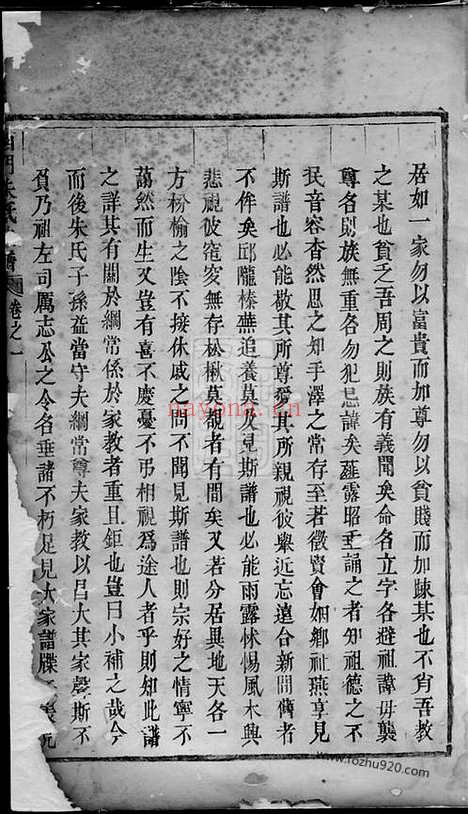 居如一家勿以富貴而加尊勿以貧賤而加踈某也不肖吾教
之某也貧乏吾周之則族有義聞矣命名立字各避祖諱毋襲
尊名則族無重名勿犯忌諱矣薤露昭垂誦之者知祖德之不
民音容杳然思之如手澤之常存至若徵賢會姻鄉社燕享見
斯譜也必能敬其所尊愛其所親視彼舉近忘遠合新間舊者
不侔矣邱隴榛蕪追養莫及見斯譜也必能雨露怵惕風木興
悲視彼窀穸無存松楸莫覩者有間矣又若分居異地天各一
方枌榆之陰不接休戚之問不聞見斯譜也則宗好之情寧不
藹然而生又豈有喜不慶憂不弔相視爲途人者乎則知此譜
之詳其有關於綱常係於家教者重且鉅也豈曰小補之哉今
而後朱氏子孫益當守夫綱常尊夫家教以昌大其家聲斯不
負乃祖左司厲志公之令名垂諸不朽足見大家譜牒
卷之一
nayona.cn
www.fozhu920.com